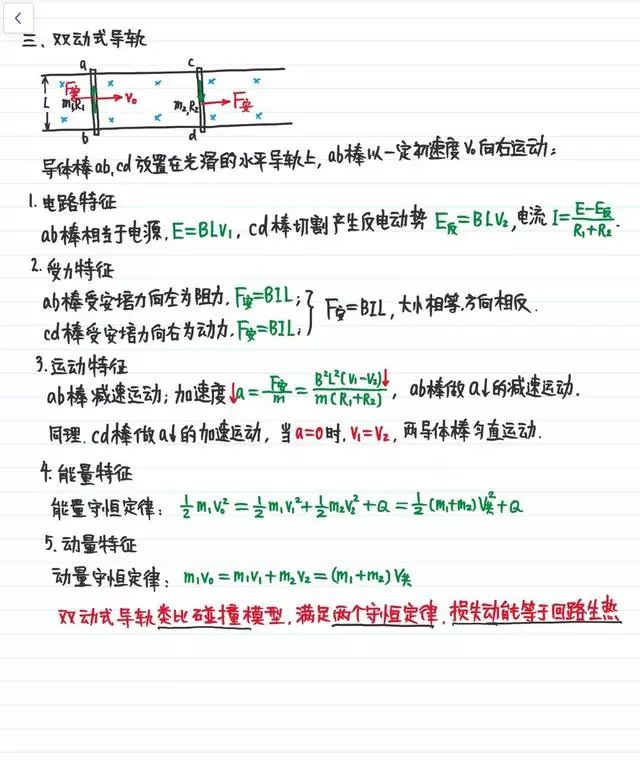 三、双动式导轨
a c
F安 m₁,R₁ v₀ m₂,R₂ F安
L
b d
导体棒ab,cd放置在光滑的水平导轨上,ab棒以一定初速度V₀向右运动;
1.电路特征
ab棒相当于电源,E=BLV₁,cd棒切割产生反电动势E反=BLV₂,电流I=(E-E反)/(R₁+R₂).
2.受力特征
ab棒受安培力向左为阻力,F安=BIL;
cd棒受安培力向右为动力,F安=BIL;
F安=BIL,大小相等.方向相反.
3.运动特征
ab棒减速运动;加速度↓a=F安/m=B²L²(V₁-V₂)↓/m(R₁+R₂),ab棒做a↓的减速运动.
同理.cd棒做a↓的加速运动,当a=0时,V₁=V₂,两导体棒匀直运动.
4.能量特征
能量守恒定律:½m₁V₀²=½m₁V₁²+½m₂V₂²+Q=½(m₁+m₂)V共²+Q
5.动量特征
动量守恒定律:m₁v₀=m₁v₁+m₂v₂=(m₁+m₂)V共
双动式导轨类比碰撞模型,满足两个守恒定律,损失动能等于回路生热